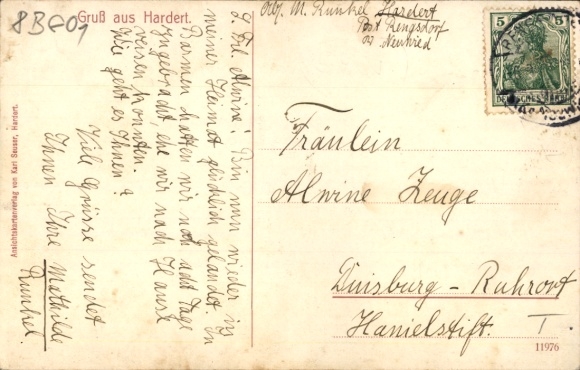 8BE01
Gruß aus Hardert.
Abs. M. Runkel Hardert
Post Rengsdorf
Neuwied
5
5
DEUTSCHES REICH
L. Frl. Alwine! Bin nun wieder in
meiner Heimat glücklich gelandet. In
Barmen hatten wir noch acht Tage
zugebracht ehe wir nach Hause
reisen konnten.
Wie geht es Ihnen?
Viele Grüsse sendet
Ihnen Ihre Mathilde
Runkel.
Fräulein
Alwine Zeuge
Duisburg-Ruhrort
Hanielstift. I
11976
Ansichtskartenverlag von Karl Seuser, Hardert.